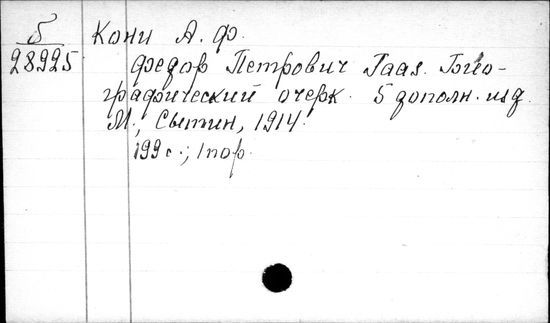 Б
28925
Кони А. Ф.
Федор Петрович Гааз. Био-
графический очерк. 5 дополн. изд.
М., Сытин, 1914.
199 с.; 1 пор.